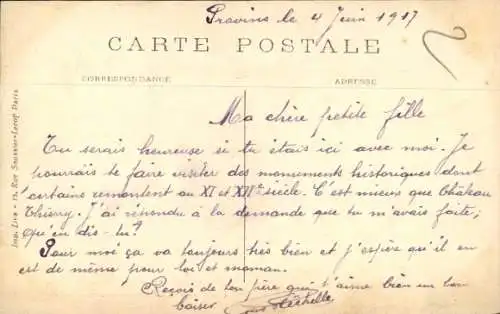 Provins le 4 Juin 1917
CARTE POSTALE
CORRESPONDANCE
ADRESSE
Ma chère petite fille
Tu serais heureuse si tu étais ici avec moi. Je
pourrais te faire visiter des monuments historiques dont
certains remontent au XI et XIIe siècle. C'est mieux que Château
Thierry. J'ai répondu à la demande que tu m'avais faite;
qu'en dis-tu?
Pour moi ça va toujours très bien et j'espère qu'il en
est de même pour toi et maman.
Reçois de ton père qui t'aime bien un bon
baiser
Paris